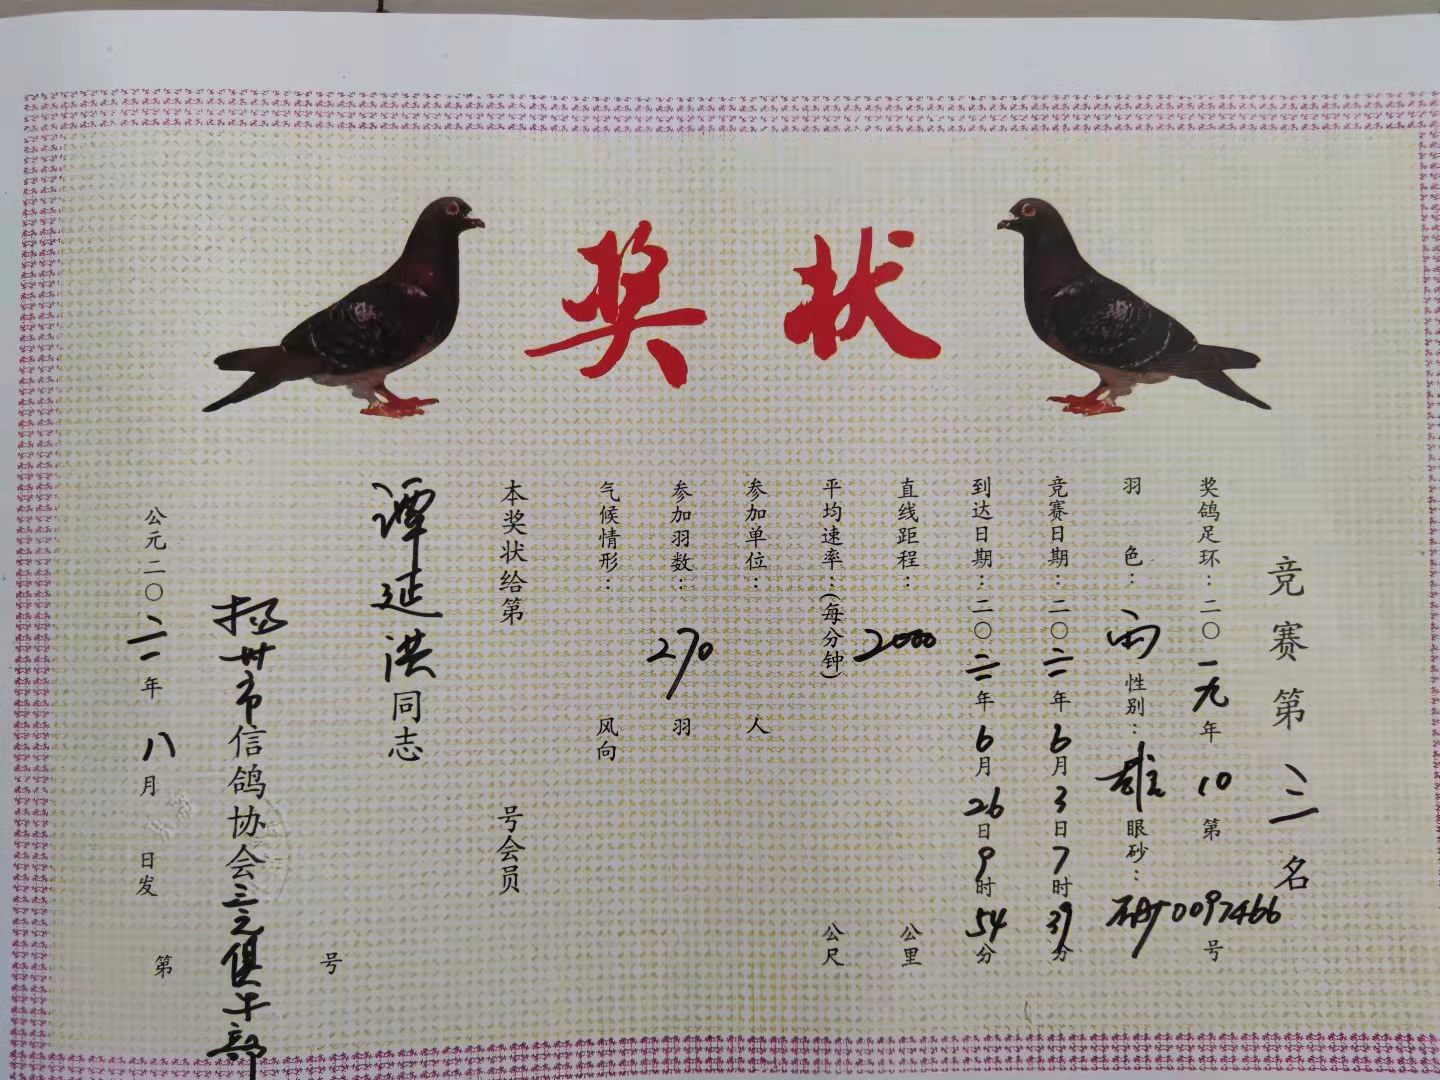 奖状
竞赛第三名
奖鸽足环：二〇一九年10第0097466号
羽色：雨 性别：雄 眼砂：砂
竞赛日期：二〇二一年6月3日7时39分
到达日期：二〇二一年6月26日9时54分
直线距程：2000公里
平均速率：(每分钟) 公尺
参加单位： 人
参加羽数：270羽
气候情形： 风向
本奖状给第 号会员
谭延洪同志
第 号
扬州市信鸽协会三元俱乐部
公元二〇二一年八月 日发